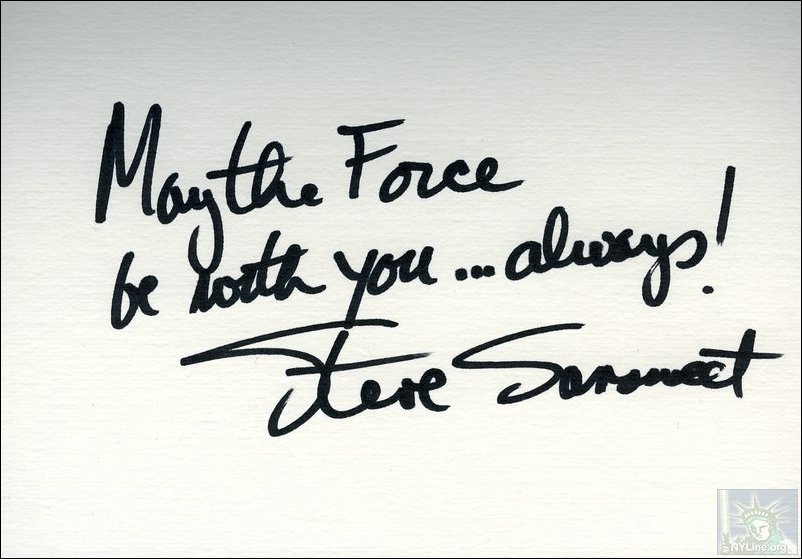 May the Force
be with you... always!
Steve Sansweet
NYLine.org